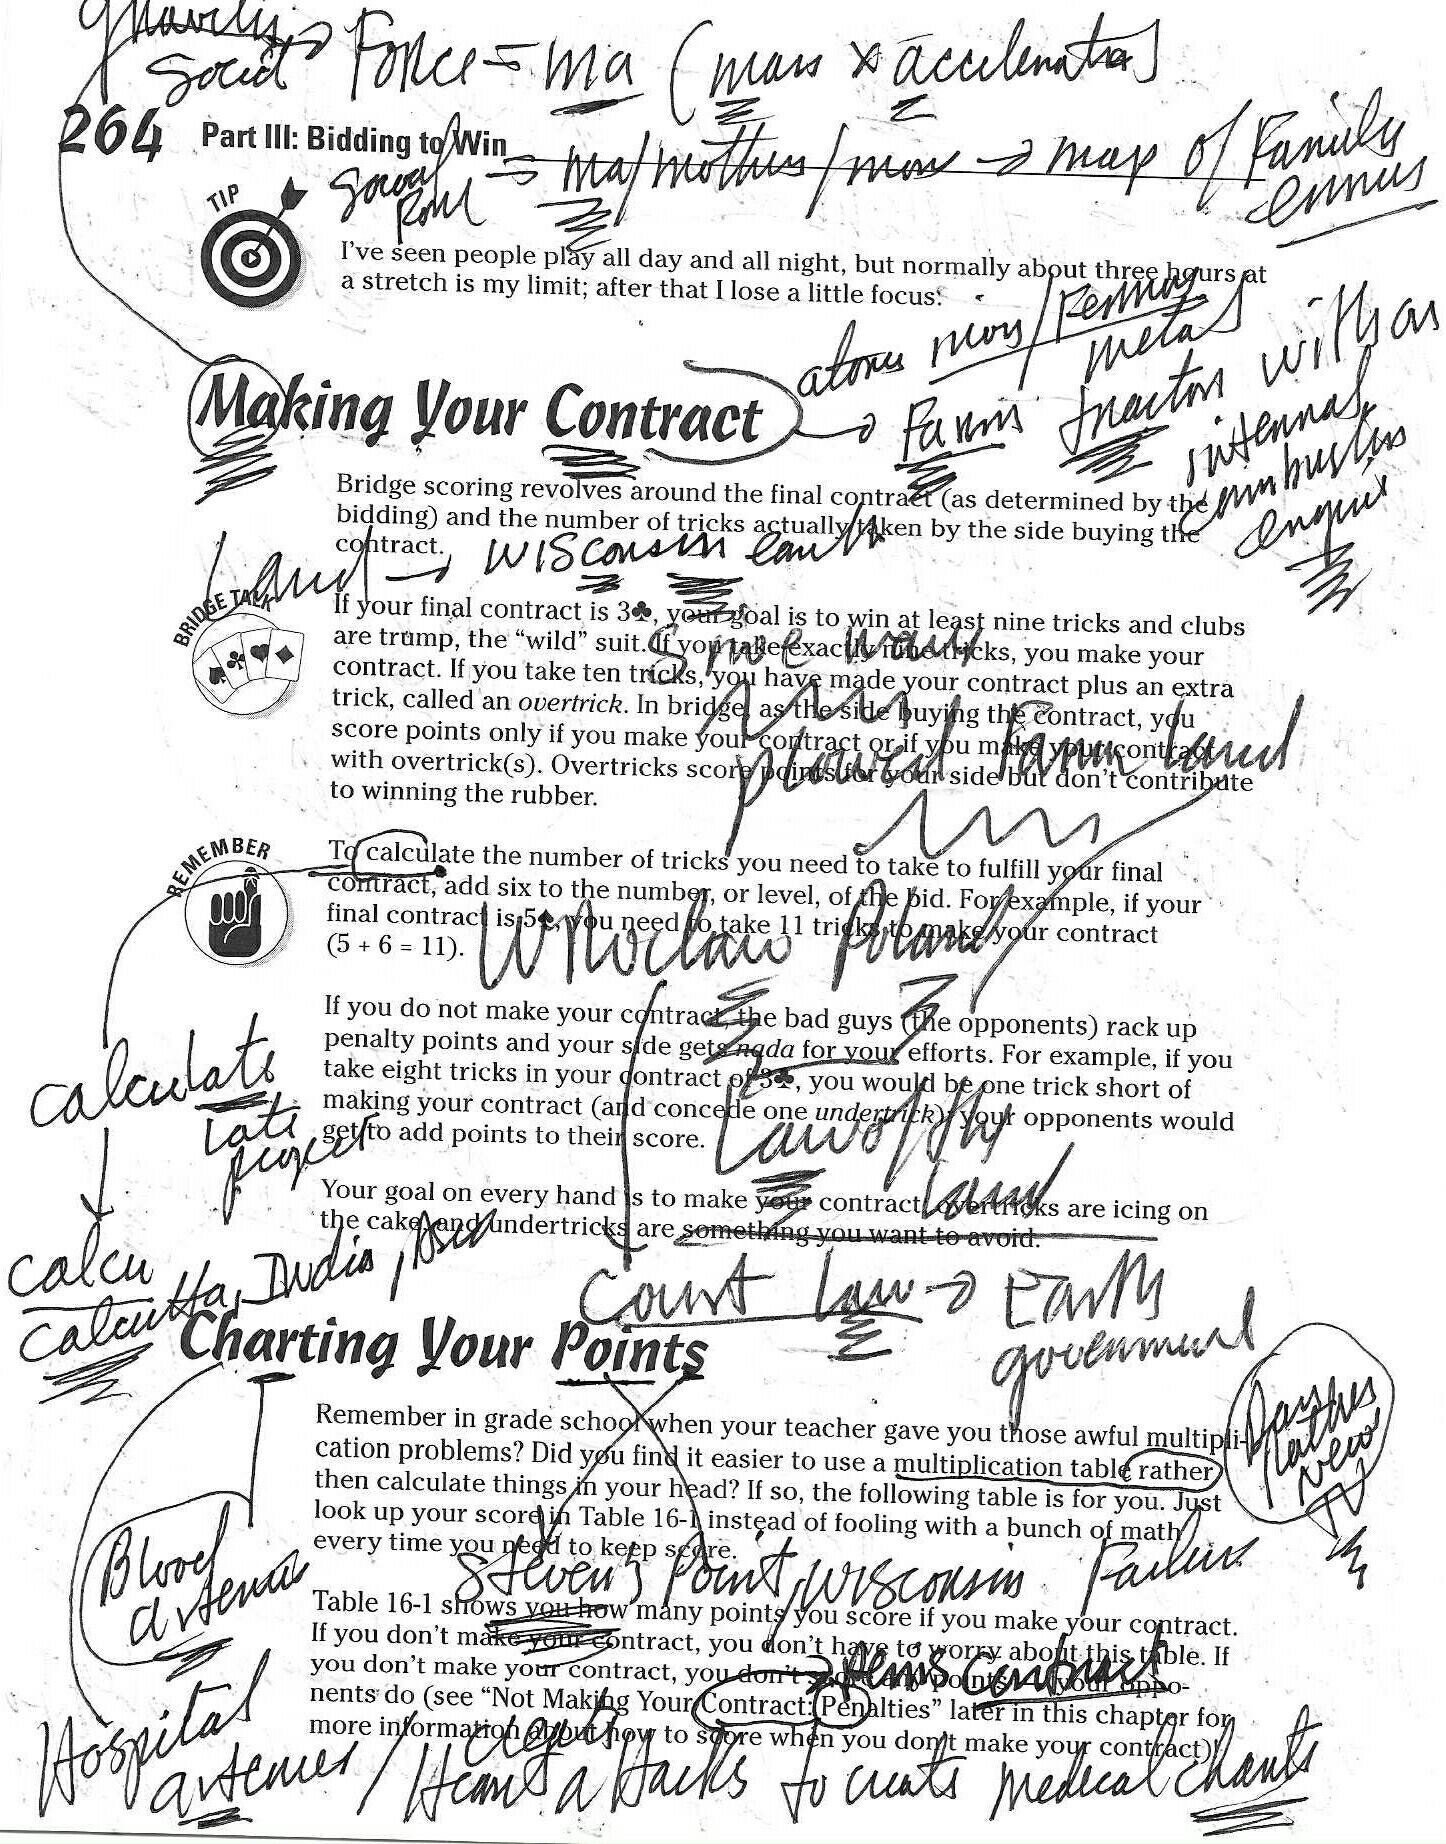 Gravity → Force = ma (mass × acceleration)
Social
264 Part III: Bidding to Win
= ma/mother/mom → map of Family
TIP
I've seen people play all day and all night, but normally about three hours at
a stretch is my limit; after that I lose a little focus.
atoms
metal
Making Your Contract
→ Farm tractor with an
internal
combustion
engine
Bridge scoring revolves around the final contract (as determined by the
bidding) and the number of tricks actually taken by the side buying the
contract.
Land → Wisconsin earth
BRIDGE TALK
If your final contract is 3♣, your goal is to win at least nine tricks and clubs
are trump, the "wild" suit. If you take exactly nine tricks, you make your
contract. If you take ten tricks, you have made your contract plus an extra
trick, called an overtrick. In bridge, as the side buying the contract, you
score points only if you make your contract or if you make your contract
with overtrick(s). Overtricks score points for your side but don't contribute
to winning the rubber.
plowed Farm land
REMEMBER
To calculate the number of tricks you need to take to fulfill your final
contract, add six to the number, or level, of the bid. For example, if your
final contract is 5♠, you need to take 11 tricks to make your contract
(5 + 6 = 11).
Wroclaw Poland
If you do not make your contract, the bad guys (the opponents) rack up
penalty points and your side gets nada for your efforts. For example, if you
take eight tricks in your contract of 3♣, you would be one trick short of
making your contract (and concede one undertrick); your opponents would
get to add points to their score.
calculate
late
project
Law of the
land
Your goal on every hand is to make your contract; overtricks are icing on
the cake, and undertricks are something you want to avoid.
calcu
calcutta, India,
Court law → Earth
government
Charting Your Points
Remember in grade school when your teacher gave you those awful multipli-
cation problems? Did you find it easier to use a multiplication table rather
then calculate things in your head? If so, the following table is for you. Just
look up your score in Table 16-1 instead of fooling with a bunch of math
every time you need to keep score.
Dan
Rather
Blood
arteries
Steven's Point, Wisconsin
Table 16-1 shows you how many points you score if you make your contract.
If you don't make your contract, you don't have to worry about this table. If
you don't make your contract, you don't score any points — your oppo-
nents do (see "Not Making Your Contract: Penalties" later in this chapter for
more information about how to score when you don't make your contract)!
→ Penis contract
Hospital
arteries / Heart attacks to create medical charts